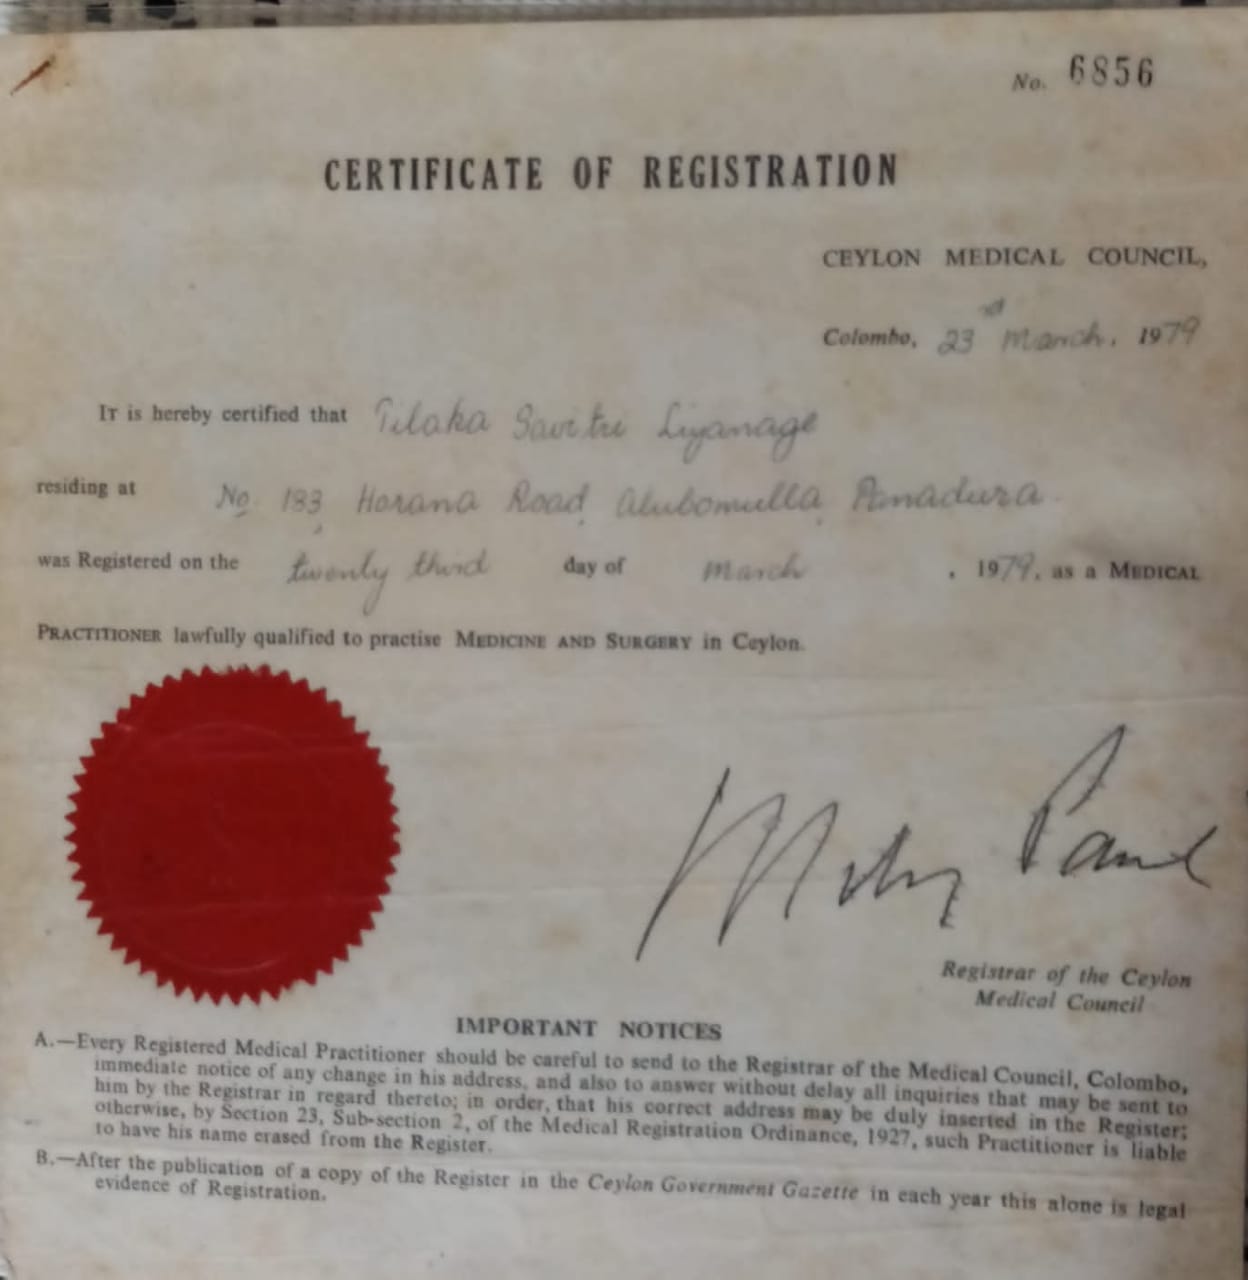 No. 6856
CERTIFICATE OF REGISTRATION
CEYLON MEDICAL COUNCIL,
Colombo, 23rd March, 1979
IT is hereby certified that Tilaka Savitri Liyanage
residing at No. 133, Horana Road, Alubomulla, Panadura.
was Registered on the twenty third day of March, 1979, as a MEDICAL
PRACTITIONER lawfully qualified to practise MEDICINE AND SURGERY in Ceylon.
Registrar of the Ceylon
Medical Council
IMPORTANT NOTICES
A.—Every Registered Medical Practitioner should be careful to send to the Registrar of the Medical Council, Colombo,
immediate notice of any change in his address, and also to answer without delay all inquiries that may be sent to
him by the Registrar in regard thereto; in order, that his correct address may be duly inserted in the Register;
otherwise, by Section 23, Sub-section 2, of the Medical Registration Ordinance, 1927, such Practitioner is liable
to have his name erased from the Register.
B.—After the publication of a copy of the Register in the Ceylon Government Gazette in each year this alone is legal
evidence of Registration.